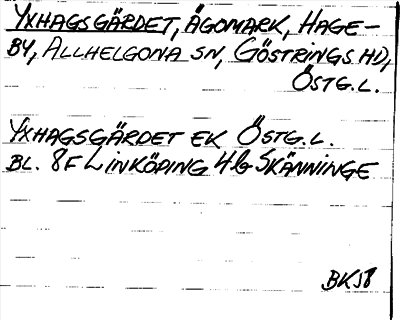 YXHAGSGÄRDET, ÄGOMARK, HAGE-
BY, ALLHELGONA SN, GÖSTRINGS HD,
ÖSTG. L.
YXHAGSGÄRDET EK ÖSTG. L.
BL. 8F LINKÖPING 4b SKÄNNINGE